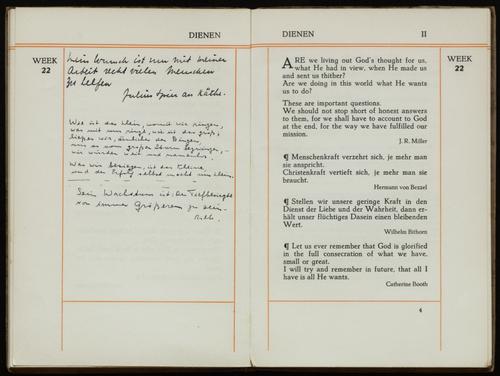 DIENEN
WEEK
22
Mein Wunsch ist nun mit meiner
Arbeit recht vielen Menschen
zu helfen
Julius Spier an Käthe.
Wie ist das klein, womit wir ringen,
was mit uns ringt, wie ist das groß;
ließen wir, ähnlicher den Dingen,
uns so vom großen Sturm bezwingen,
wir würden weit und namenlos.
Was wir besiegen, ist das Kleine,
und der Erfolg selbst macht uns klein.
Sein Wachstum ist: Der Tiefbesiegte
von immer Größerem zu sein.
Rilke.
DIENEN II
WEEK
22
ARE we living out God's thought for us,
what He had in view, when He made us
and sent us thither?
Are we doing in this world what He wants
us to do?
These are important questions.
We should not stop short of honest answers
to them, for we shall have to account to God
at the end, for the way we have fulfilled our
mission.
J. R. Miller
¶ Menschenkraft verzehrt sich, je mehr man
sie anspricht.
Christenkraft vertieft sich, je mehr man sie
braucht.
Hermann von Bezzel
¶ Stellen wir unsere geringe Kraft in den
Dienst der Liebe und der Wahrheit, dann er-
hält unser flüchtiges Dasein einen bleibenden
Wert.
Wilhelm Bithorn
¶ Let us ever remember that God is glorified
in the full consecration of what we have,
small or great.
I will try and remember in future, that all I
have is all He wants.
Catherine Booth
4